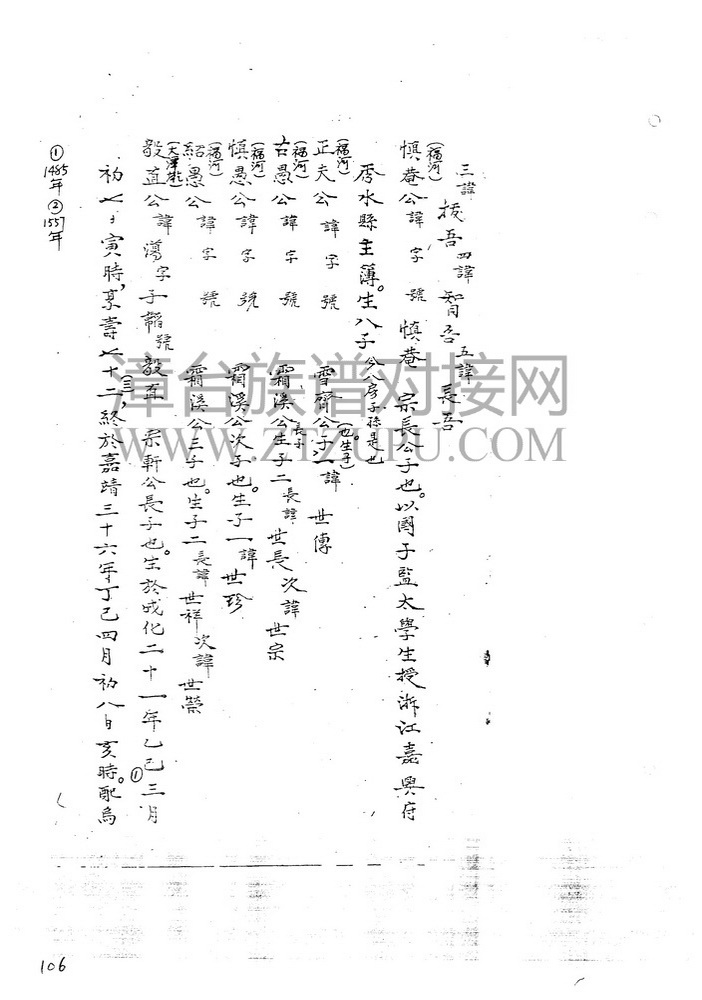 三諱 拔吾 四諱 智吾 五諱 長吾
(福河)
慎菴公諱 字 號 慎菴 宗長公子也。以國子監太學生授浙江嘉興府
秀水縣主薄。生八子 今八房子孫是也
(福河)
正夫公諱 字 號 雪齊公子 (也。生子) 一諱 世傳
(福河)
古愚公諱 字 號 霜溪公長子 生子二 長諱 世長 次諱 世宗
(福河)
慎愚公諱 字 號 霜溪公次子也。生子一諱 世珍
(福河)
紹愚公諱 字 號 霜溪公三子也。生子二 長諱 世祥 次諱 世榮
毅直公諱 蕩 字 子韜 號 毅直 宗軒公長子也。生於成化二十一年乙巳①三月
初七日寅時,享壽七十二(三),終於嘉靖三十六年丁巳四月初八日亥時。配烏
① 1485年 ② 1557年
106
漳台族谱对接网
WWW.ZTZUPU.COM